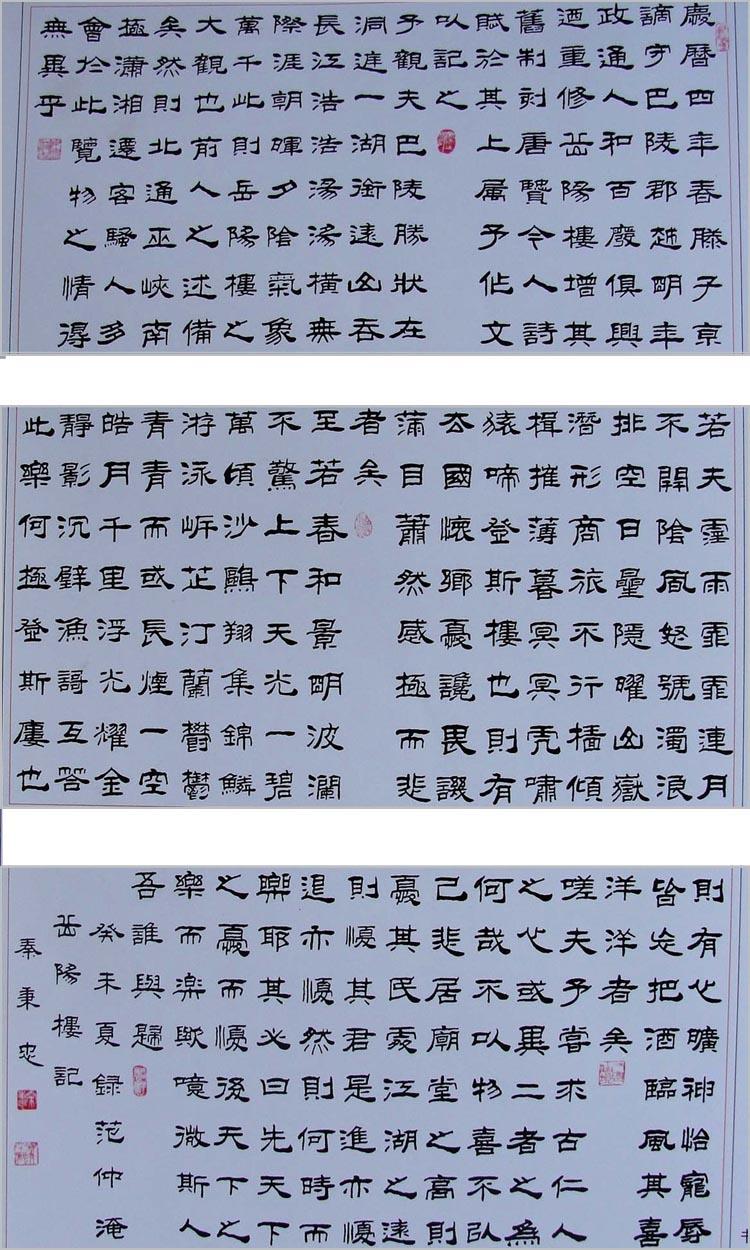 慶曆四年春滕子京
謫守巴陵郡越明年
政通人和百廢俱興
迺重修岳陽樓增其
舊制刻唐賢今人詩
賦於其上属予作文
以記之
予觀夫巴陵勝狀在
洞庭一湖銜遠山吞
長江浩浩湯湯橫無
際涯朝暉夕陰氣象
萬千此則岳陽樓之
大觀也前人之述備
矣然則北通巫峽南
極瀟湘遷客騷人多
會於此覽物之情得
無異乎
若夫霪雨霏霏連月
不開陰風怒號濁浪
排空日星隱曜山嶽
潛形商旅不行檣傾
楫摧薄暮冥冥虎嘯
猿啼登斯樓也則有
去國懷鄉憂讒畏譏
滿目蕭然感極而悲
者矣
至若春和景明波瀾
不驚上下天光一碧
萬頃沙鷗翔集錦鱗
游泳岸芷汀蘭鬱鬱
青青而或長煙一空
皓月千里浮光耀金
靜影沉璧漁謌互答
此樂何極登斯樓也
則有心曠神怡寵辱
皆忘把酒臨風其喜
洋洋者矣
嗟夫予嘗求古仁人
之心或異二者之為
何哉不以物喜不以
己悲居廟堂之高則
憂其民處江湖之遠
則憂其君是進亦憂
退亦憂然則何時而
樂耶其必曰先天下
之憂而憂後天下之
樂而樂歟噫微斯人
吾誰與歸
癸未夏錄范仲淹
岳陽樓記
秦秉忠